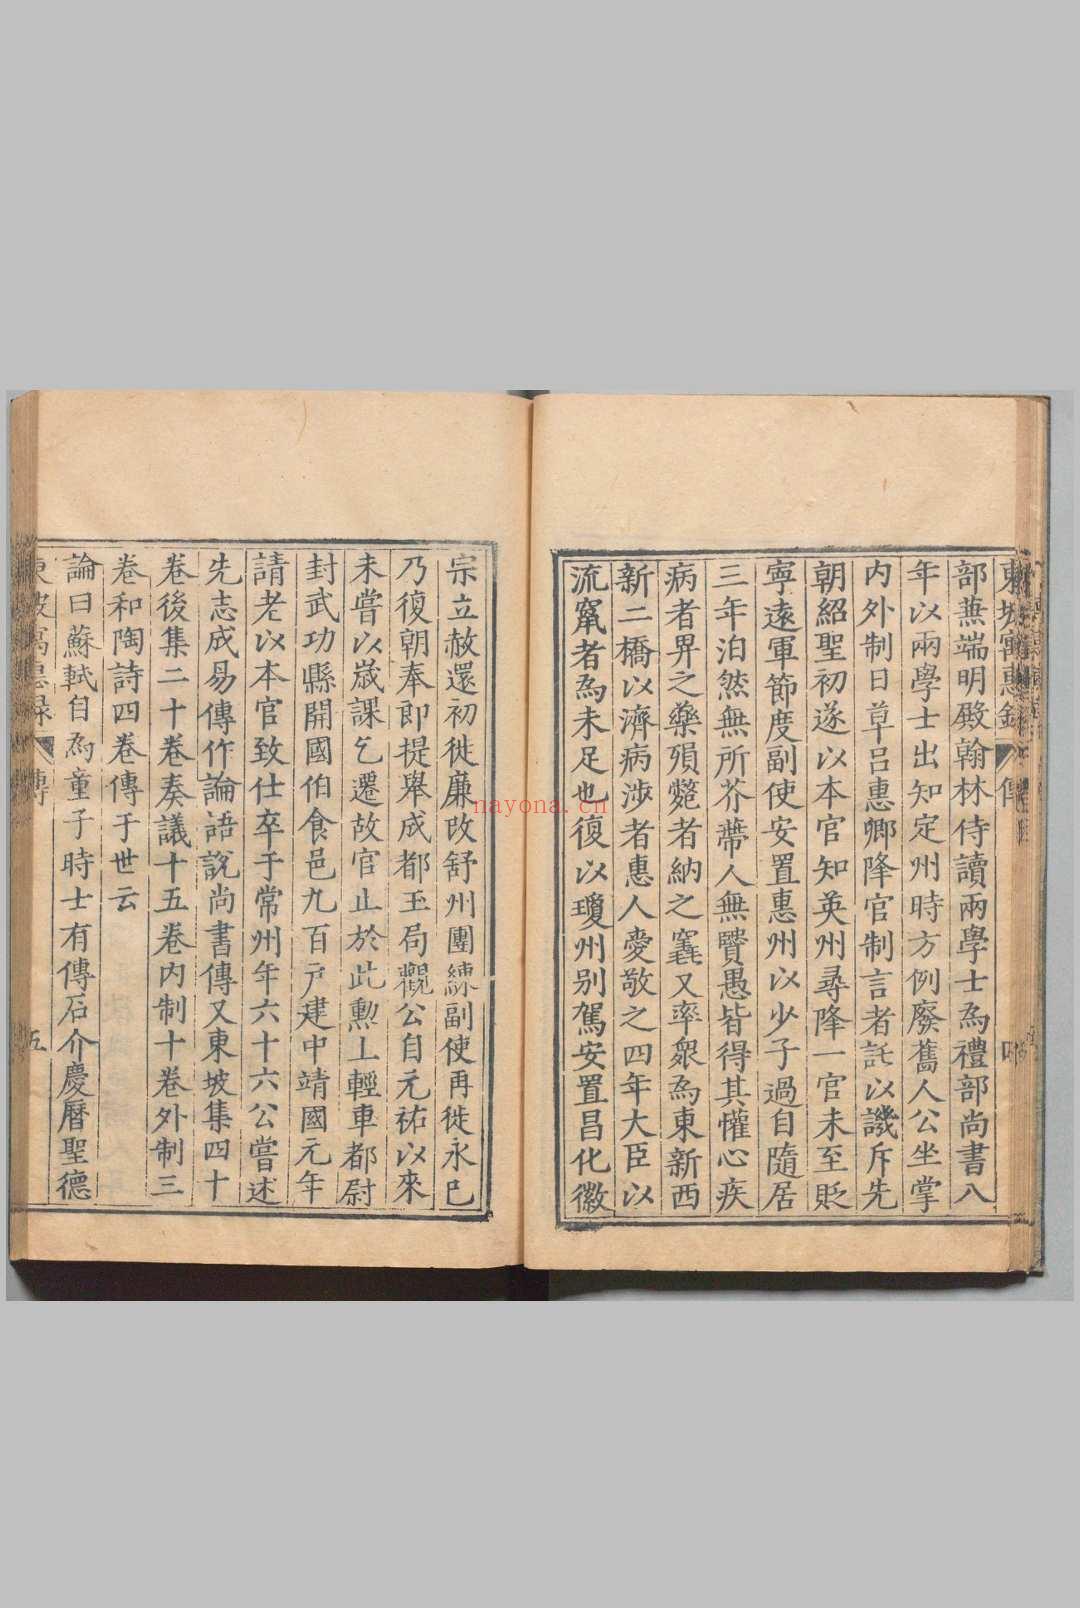 東坡寓惠錄 傳
部蕪端明殿翰林侍讀兩學士為禮部尚書八
年以兩學士出知定州時方例廢舊人公坐掌
内外制日草吕惠卿降官制言者託以譏斥先
朝紹聖初遂以本官知英州尋降一官未至貶
寧遠軍節度副使安置惠州以少子過自隨居
三年泊然無所芥蔕人無賢愚皆得其懽心疾
病者畀之藥殞斃者納之窀又率衆為東新西
新二橋以濟病涉者惠人愛敬之四年大臣以
流竄者為未足也復以瓊州别駕安置昌化徽
宗立赦還初徙廉改舒州團練副使再徙永巳
乃復朝奉郎提舉成都玉局觀公自元祐以來
未嘗以歲課乞遷故官止於此勲上輕車都尉
封武功縣開國伯食邑九百戸建中靖國元年
請老以本官致仕卒于常州年六十六公嘗述
先志成易傳作論語說尚書傳又東坡集四十
卷後集二十卷奏議十五卷内制十卷外制三
卷和陶詩四卷傳于世云
論曰蘇軾自為童子時士有傳石介慶曆聖德
東坡寓惠録 傳 五
nayona.cn